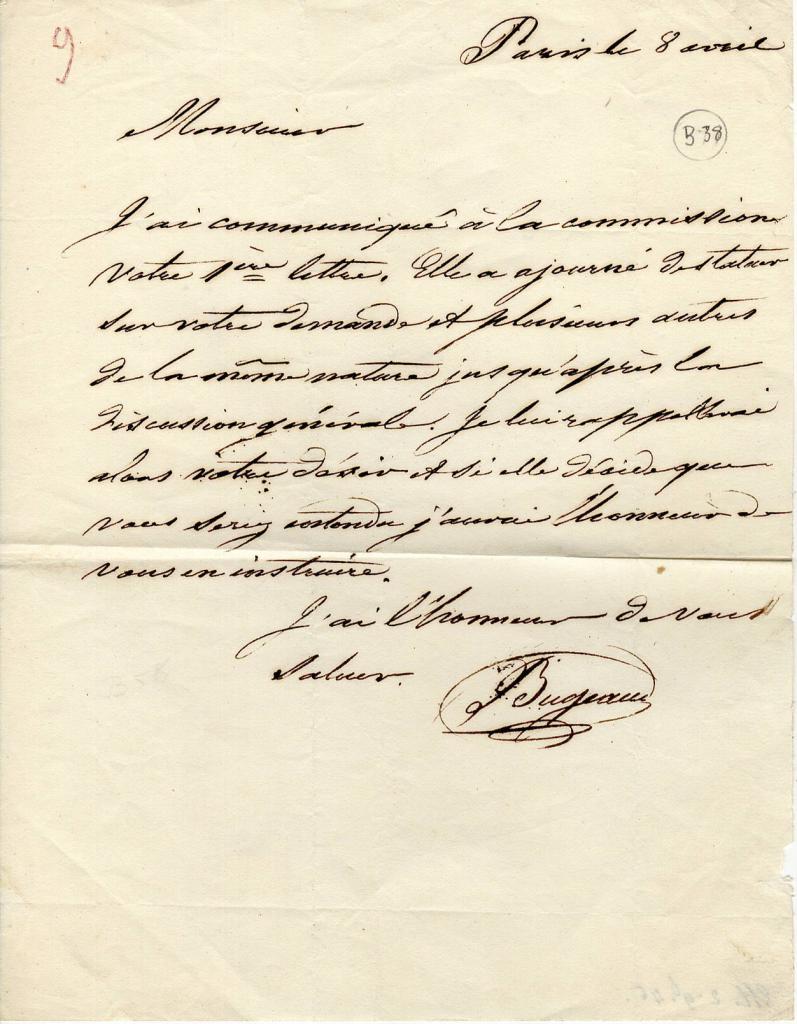 9
Paris le 8 avril
Monsieur
B-38
J'ai communiqué à la commission
votre 1ère lettre. Elle a ajourné de statuer
sur votre demande et plusieurs autres
de la même nature jusqu'après la
discussion générale. Je lui rappellerai
alors votre désir et si elle décide que
vous serez entendu j'aurai l'honneur de
vous en instruire.
J'ai l'honneur de vous
saluer.
Bugeaud